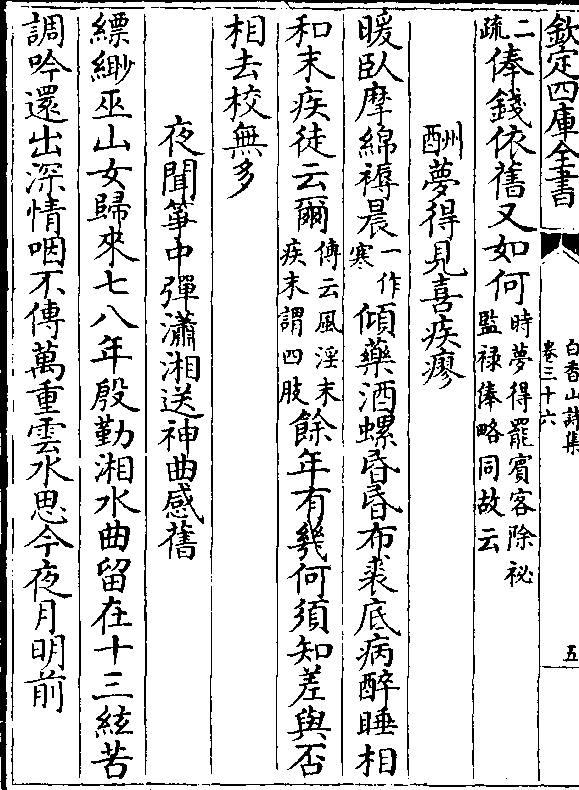 欽定四庫全書
白香山詩集
卷三十六
五
二疏俸錢依舊又如何時夢得罷賓客除秘監禄俸略同故云
酬夢得見喜疾瘳
暖臥摩綿褥晨一作寒傾藥酒螺昏昏布裘底病醉睡相
和末疾徒云爾傳云風淫末疾末謂四肢餘年有幾何須知差與否
相去校無多
夜聞箏中彈瀟湘送神曲感舊
縹緲巫山女歸來七八年殷勤湘水曲留在十三絃苦
調吟還出深情咽不傳萬重雲水思今夜月明前